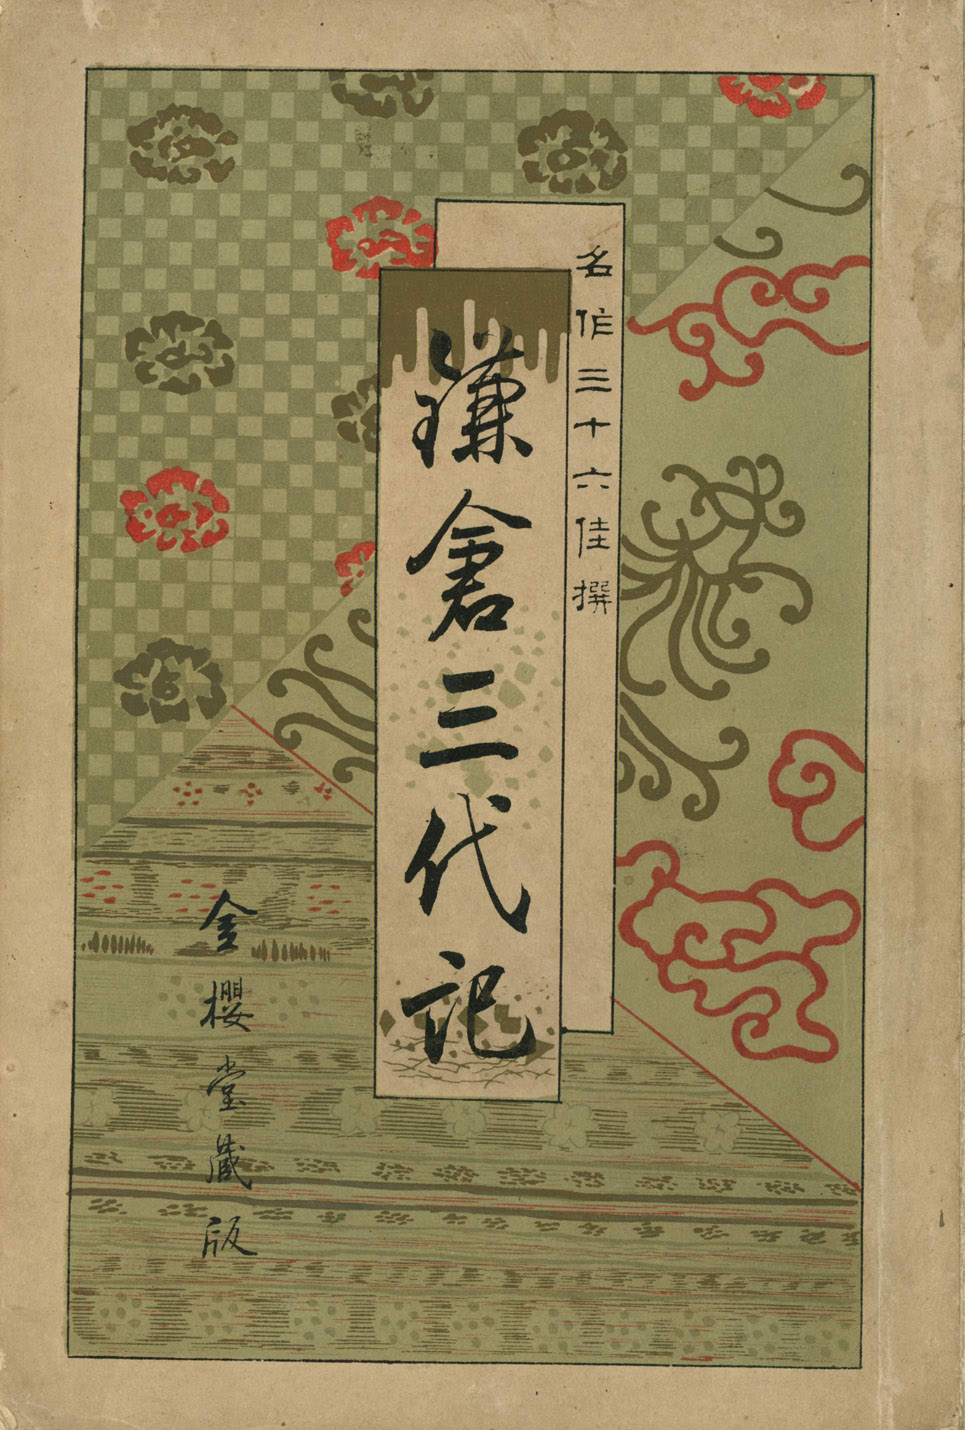 名作三十六佳撰
鎌倉三代記
金櫻堂藏版